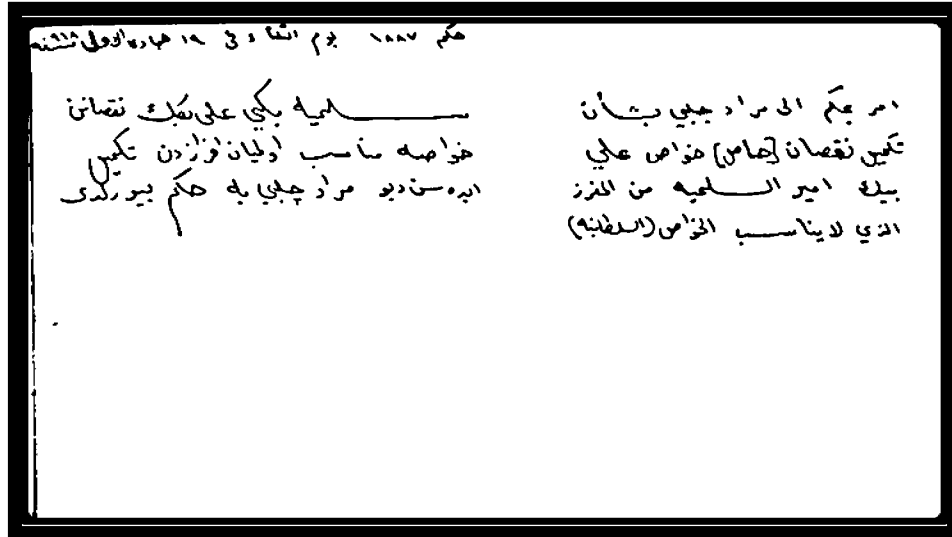 حكم ١٨٨٧ يوم الثلاثاء في ١٩ جمادى الاولى
امر بحكم الى مراد جلبي بشأن
تكميل نقصان [خاص] خواص علي
بيك امير السلميه من المفرز
الذي لا يناسب الخواص (السلطانية)
سلميه بكي علي بكك نقصانن
خواصه مناسب اوليان افرازدن تكميل
ايده سن ديو مراد چلبي يه حكم بيورلدى